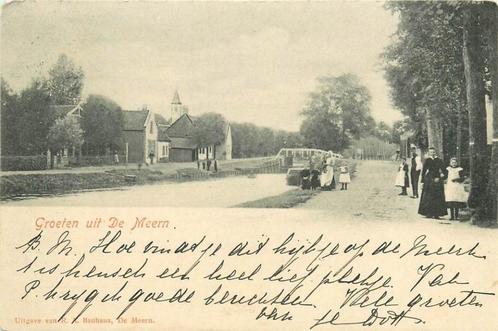 Groeten uit De Meern
B. M. Hoe vindt je dit kijkje op de Meern
't is heusch een heel lief plekje. Van
P. kryg ik goede berichten. Vele groeten
van je Dott
Uitgave van R. A. Bauhaus, De Meern.